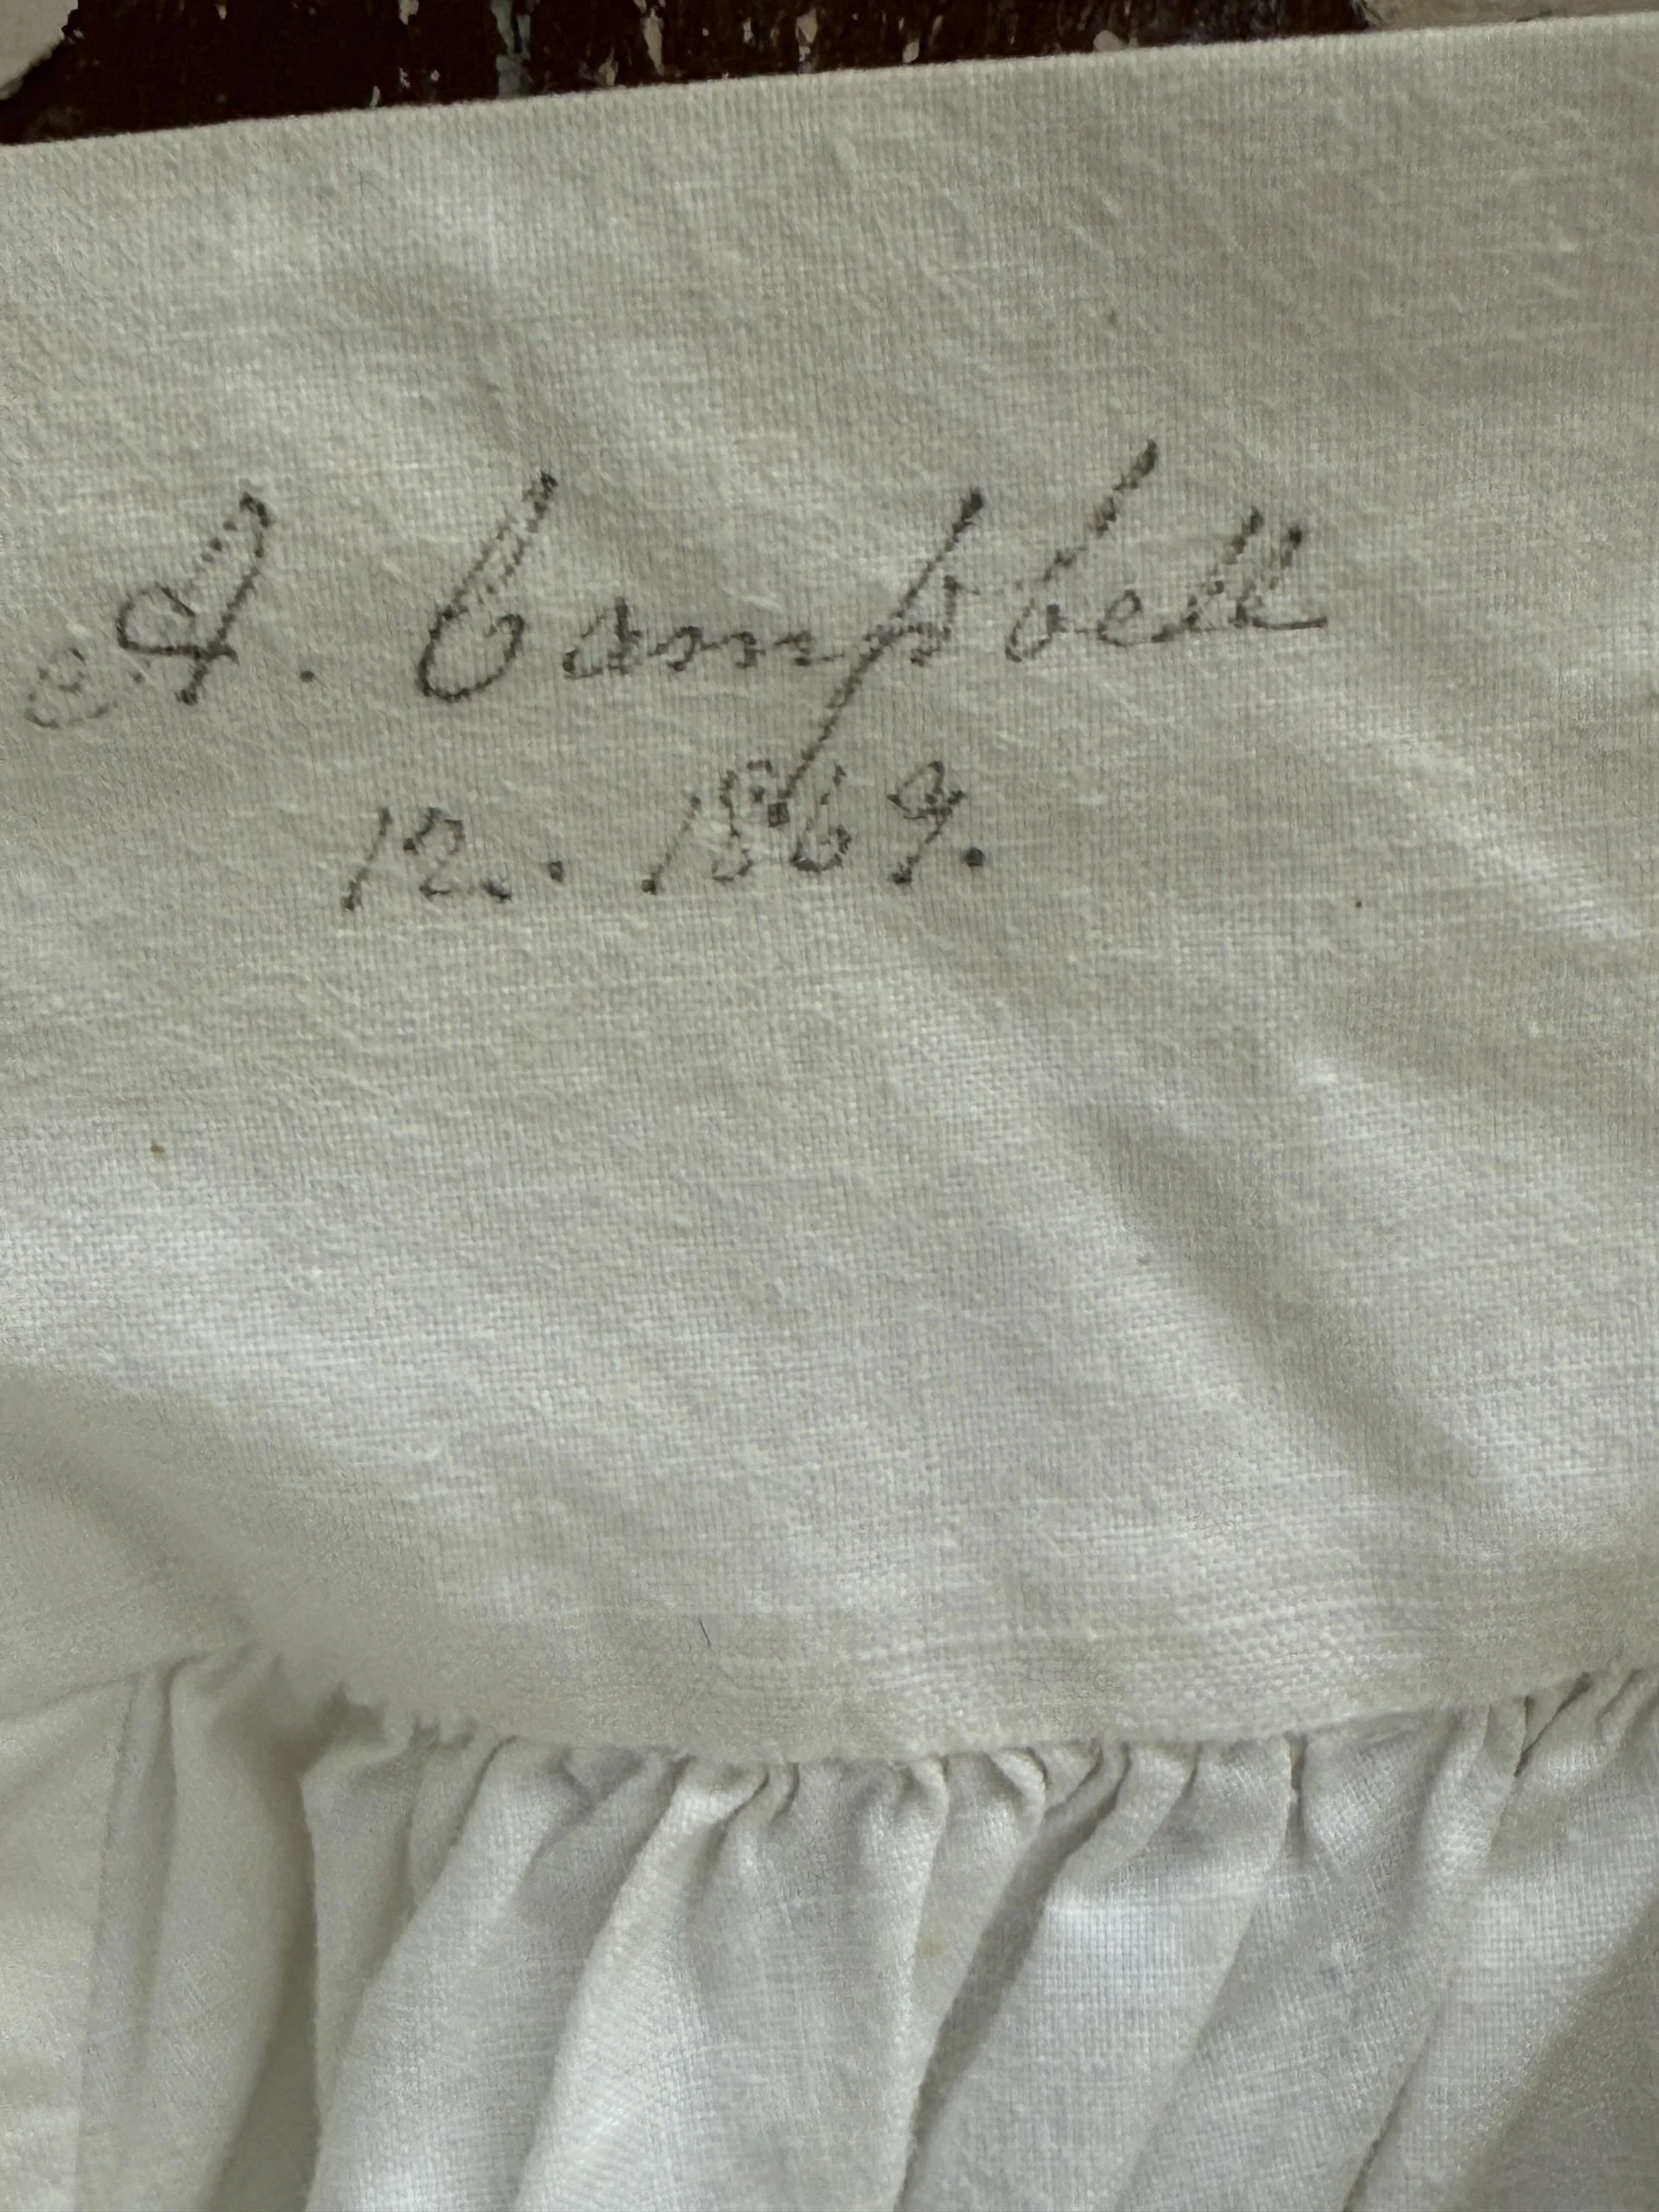 A. Campbell
12. 1869.